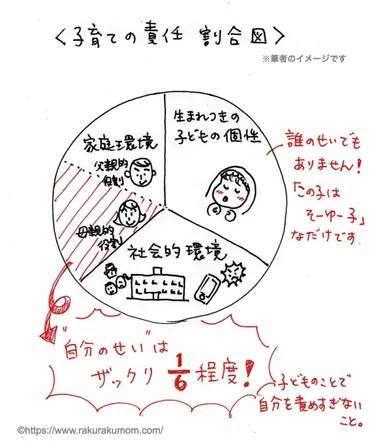 〈子育ての責任 割合図〉
※筆者のイメージです
家庭環境
父親的
役割
母親的
役割
生まれつきの
子どもの個性
社会的環境
誰のせいでも
ありません!
「この子は
そーゆー子」
なだけです.
"自分のせい"は
ザックリ 1/6 程度!
子どものことで
自分を責めすぎない
こと。
©https://www.rakurakumom.com/